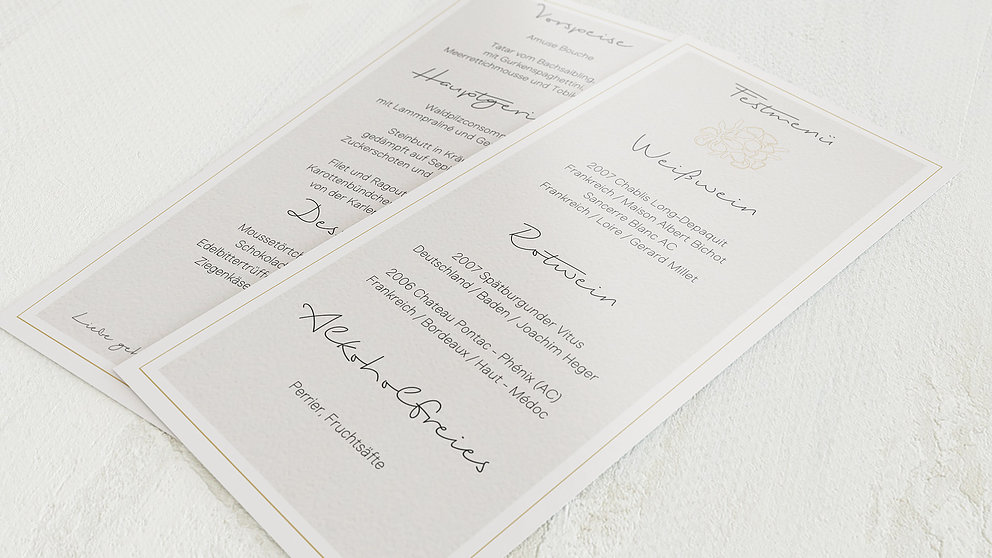 Vorspeise
Amuse Bouche
Tatar vom Bachsaibling,
mit Gurkenspaghettini,
Meerrettichmousse und
Waldpilzconsommé
mit Lammpraliné und
Steinbutt in
gedämpft auf
Zuckerschoten und
Filet und Ragout
von der
Edelbittertrüffel
Ziegenkäse
Festmenü
Weißwein
2007 Chablis Long-Depaquit
Frankreich / Maison Albert Bichot
Sancerre Blanc AC
Frankreich / Loire / Gerard Millet
Rotwein
2007 Spätburgunder Vitus
Deutschland / Baden / Joachim Heger
2006 Chateau Pontac - Phénix (AC)
Frankreich / Bordeaux / Haut - Médoc
Alkoholfreies
Perrier, Fruchtsäfte